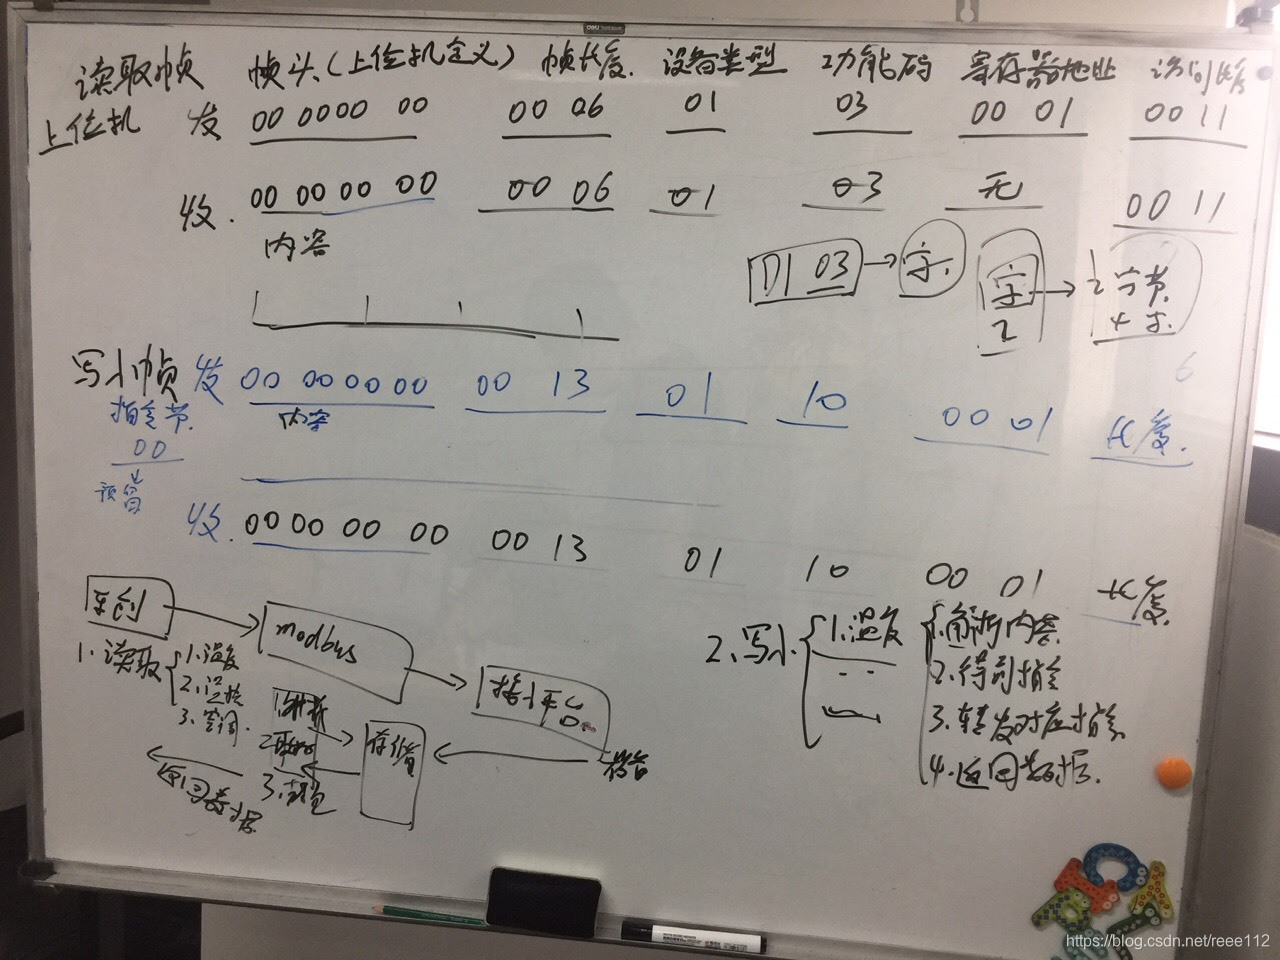 读取帧 帧头(上位机定义) 帧长度. 设备类型 功能码 寄存器地址 访问长度
上位机 发 00 00 00 00 00 06 01 03 00 01 00 11
收. 00 00 00 00 00 06 01 03 无 00 11
内容
01 03 → 字. 字 → 2字节.
2 4字.
写入帧 发 00 00 00 00 00 13 01 10 00 01 长度.
6
指令节. 内容
00
预留
收. 00 00 00 00 00 13 01 10 00 01 长度.
平台
modbus
1. 读取 1. 温度
2. 温控
3. 空调.
接入平台
1. 解析
2. 取
3. 封包
存储
设备
返回数据
2. 写入. 1. 温度
1. 解析内容
2. 得到指令
3. 转发对应指令
4. 返回数据.
deli
https://blog.csdn.net/reee112